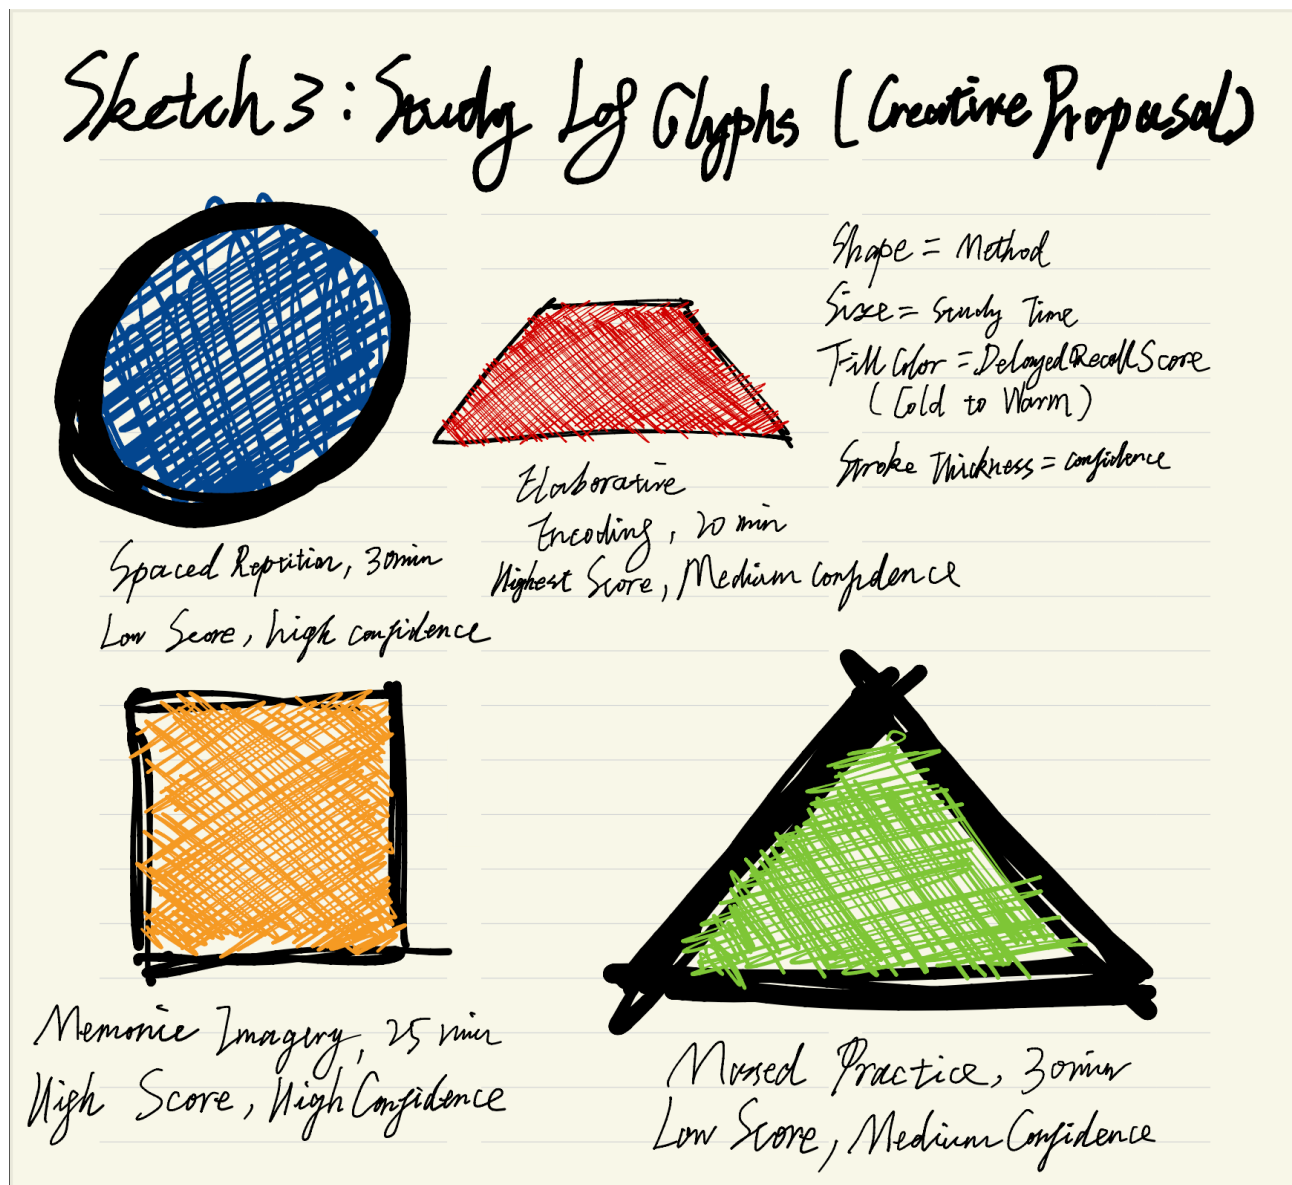 Sketch 3: Study Log Glyphs (Creative Proposal)
Shape = Method
Size = Study Time
Fill Color = Delayed Recall Score
(Cold to Warm)
Stroke Thickness = confidence
Elaborative
Encoding, 20 min
Highest Score, Medium Confidence
Spaced Reptition, 30min
Low Score, high confidence
Memonic Imagery, 25 min
High Score, High Confidence
Massed Practice, 30min
Low Score, Medium Confidence